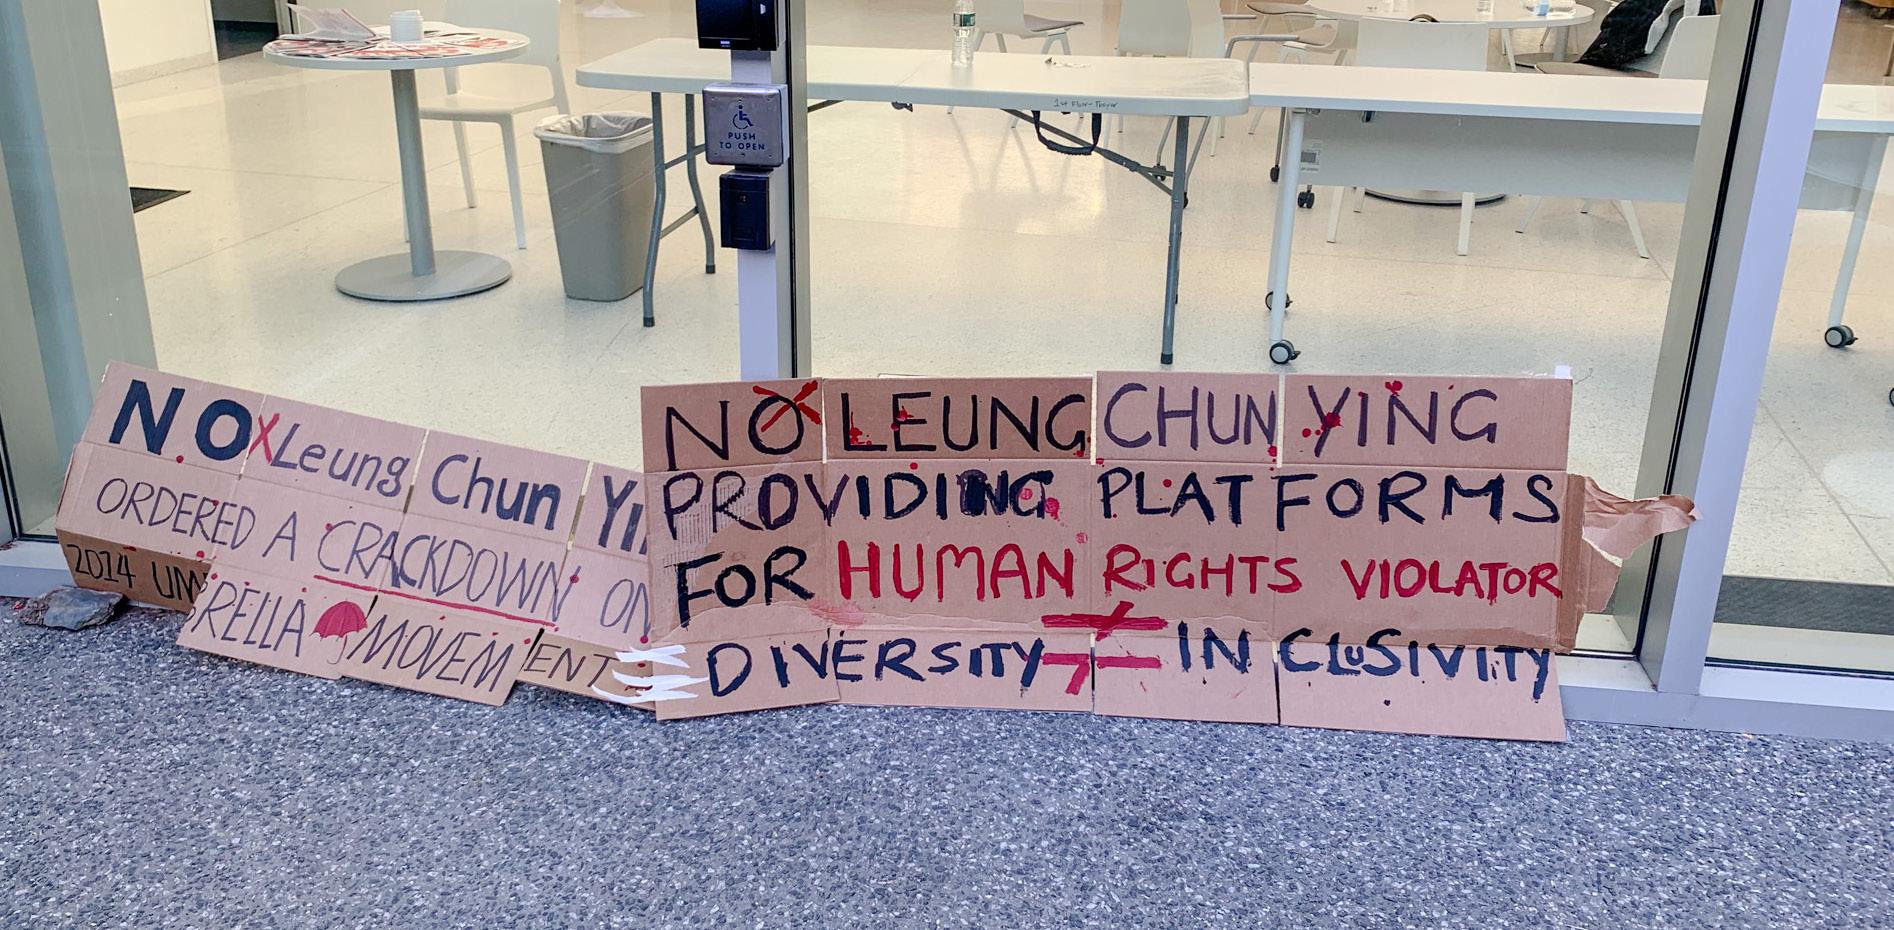 PUSH
TO OPEN
1st Floor-Thayer
NO Leung Chun Yi
ORDERED A CRACKDOWN ON
2014 UMBRELLA MOVEMENT
NO LEUNG CHUN YING
PROVIDING PLATFORMS
FOR HUMAN RIGHTS VIOLATOR
DIVERSITY ≠ INCLUSIVITY